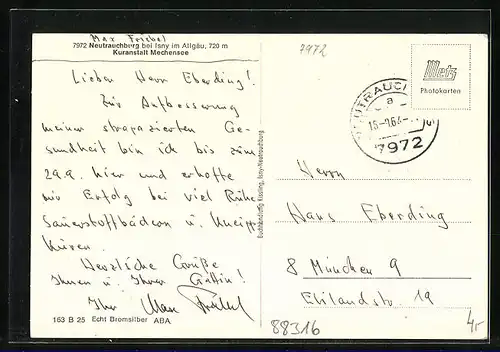 Max Friebel
7972 Neutrauchburg bei Isny im Allgäu, 720 m
Kuranstalt Mechensee
Lieber Herr Eberding!
Zur Aufbesserung
meiner strapazierten Ge-
sundheit bin ich bis zum
29.9. hier und erhoffe
mir Erfolg bei viel Ruhe
Sauerstoffbädern u. Kneipp
Kuren.
Herzliche Grüße
Ihnen u. Ihrer Gattin!
Ihr Max Friebel
163 B 25 Echt Bromsilber ABA
Buchhandlung Kissling, Isny-Neutrauchburg
7972
Metz
Photokarten
NEUTRAUCH
a
7972
Herrn
Hans Eberding
8 München 9
Ehlandstr. 19
88316
4,-